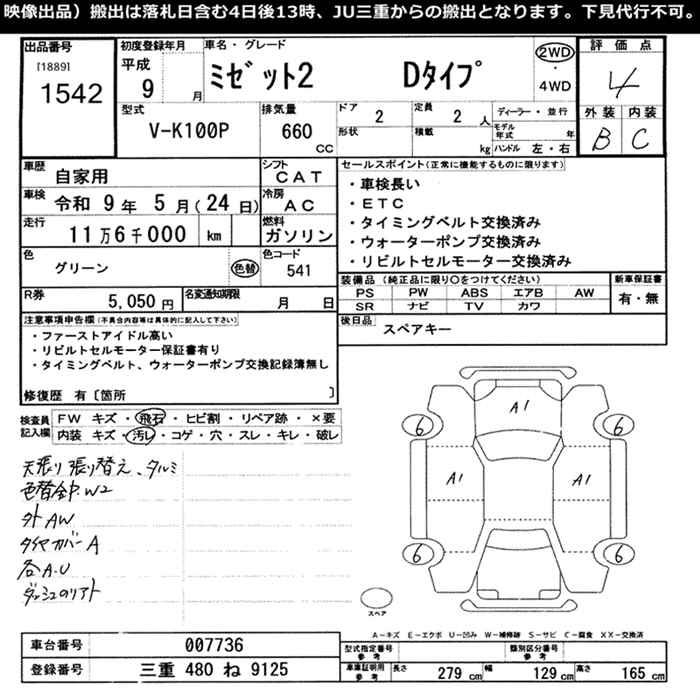 映像出品）搬出は落札日含む4日後13時、JU三重からの搬出となります。下見代行不可。
出品番号
[1889]
1542
初度登録年月
平成
9 月
車名・グレード
ミゼット2 Dタイプ
2WD
・
4WD
評価点
4
外装 内装
B C
型式
V-K100P
排気量
660 CC
ドア 2
形状
定員 2 人
積載 kg
ディーラー・並行
モデル年式 年
ハンドル 左・右
車歴
自家用
シフト
CAT
車検
令和 9 年 5 月(24 日)
冷房
AC
走行
11万6千000 km
燃料
ガソリン
色
グリーン 色替
色コード
541
R券
5,050円
名変通知期限 月 日
セールスポイント(正常に機能するものに限ります)
・車検長い
・ETC
・タイミングベルト交換済み
・ウォーターポンプ交換済み
・リビルトセルモーター交換済み
装備品(純正品に限り○をつけてください)
PS PW ABS エアB AW
SR ナビ TV カワ
新車保証書
有・無
後日品
スペアキー
注意事項申告欄(不具合内容等は具体的に記入して下さい)
・ファーストアイドル高い
・リビルトセルモーター保証書有り
・タイミングベルト、ウォーターポンプ交換記録簿無し
修復歴 有〔箇所 〕
検査員記入欄
FW キズ・飛石・ヒビ割・リペア跡・×要
内装 キズ・汚レ・コゲ・穴・スレ・キレ・破レ
天張り張り替え、タルミ
色替全P.W2
外AW
タイヤカバーA
各A.U
ダッシュのリアト
A1
6 6
A1 A1
6 6
スペア
A－キズ E－エクボ U－凹み W－補修跡 S－サビ C－腐食 XX－交換済
車台番号 007736
登録番号 三重 480 ね 9125
型式指定番号
参考
類別区分番号
参考
車庫証明用
参考
長さ 279 cm 幅 129 cm 高さ 165 cm